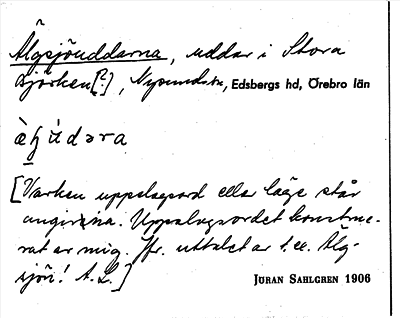 Älgsjöuddarna, uddar i Stora
Björken [?], Nysundsn, Edsbergs hd, Örebro län
[Varken uppslagsord eller läge står
angivna. Uppslagsordet konstrue-
rat av mig. Jfr. uttalet av t. ex. Älg-
sjön! A. L.]
JÖRAN SAHLGREN 1906